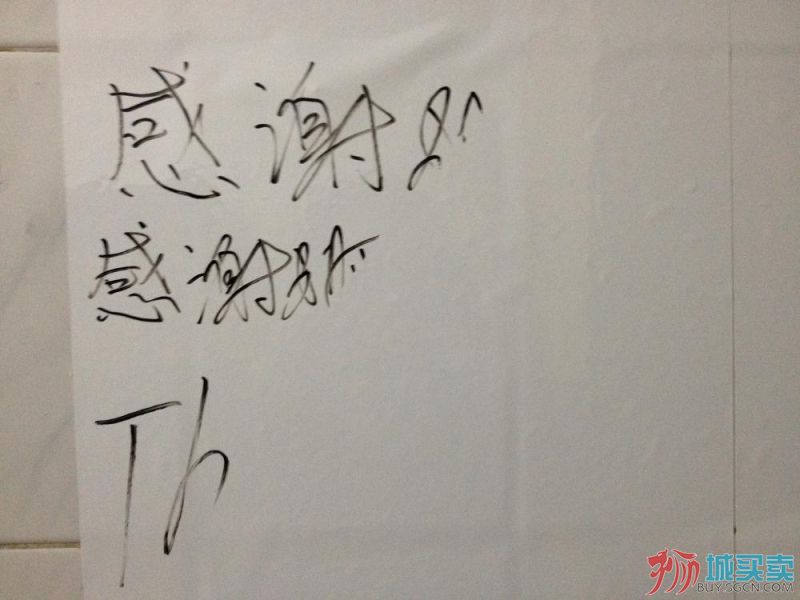 感谢
感谢
Th
狮城买卖
BUY.SGCN.COM